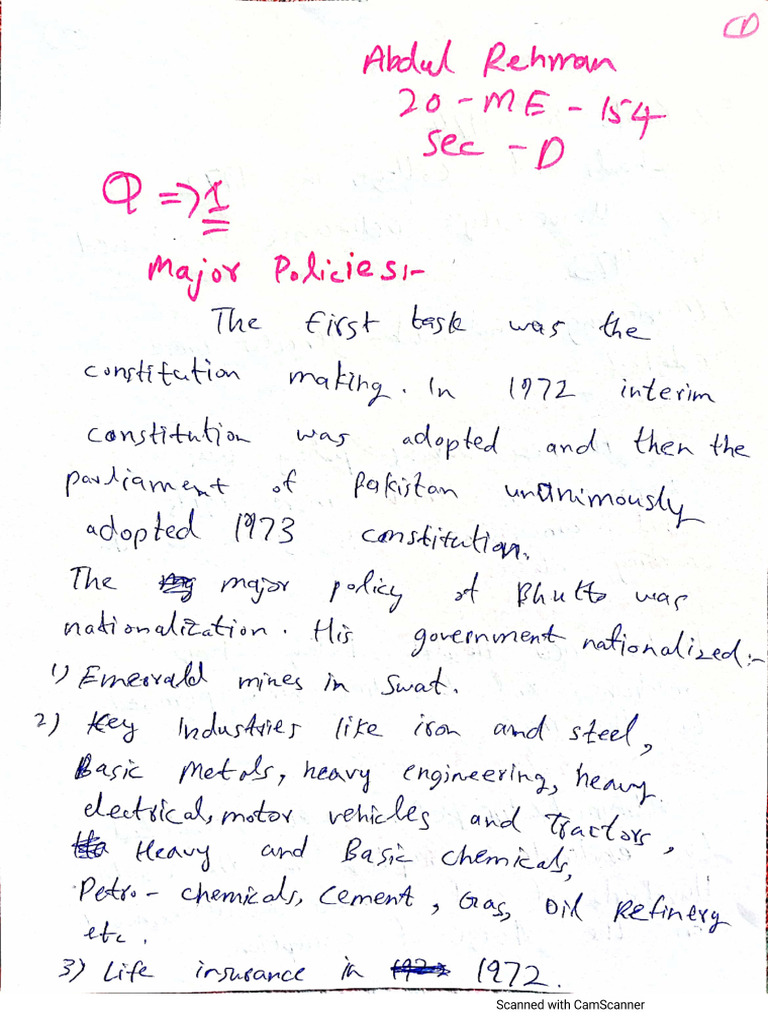 1
Abdul Rehman
20-ME-154
Sec-D
Q => 1
Major Policies:-
The first task was the
constitution making. In 1972 interim
constitution was adopted and then the
parliament of Pakistan unanimously
adopted 1973 constitution.
The major policy of Bhutto was
nationalization. His government nationalized:-
1) Emerald mines in Swat.
2) Key Industries like iron and steel,
Basic Metals, heavy engineering, heavy
electrical, motor vehicles and Tractors,
Heavy and Basic chemicals,
Petro-chemicals, Cement, Gas, Oil Refinery
etc.
3) Life insurance in 1972.
Scanned with CamScanner